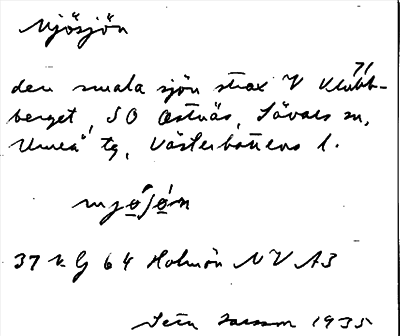 Mjösjön
den smala sjön strax V Klubb-
berget, SO Ostnäs, Sävars sn,
Umeå tg, Västerbottens l.
mjøʹjøʹn
37 k G 64 Holmön NV A3
1935